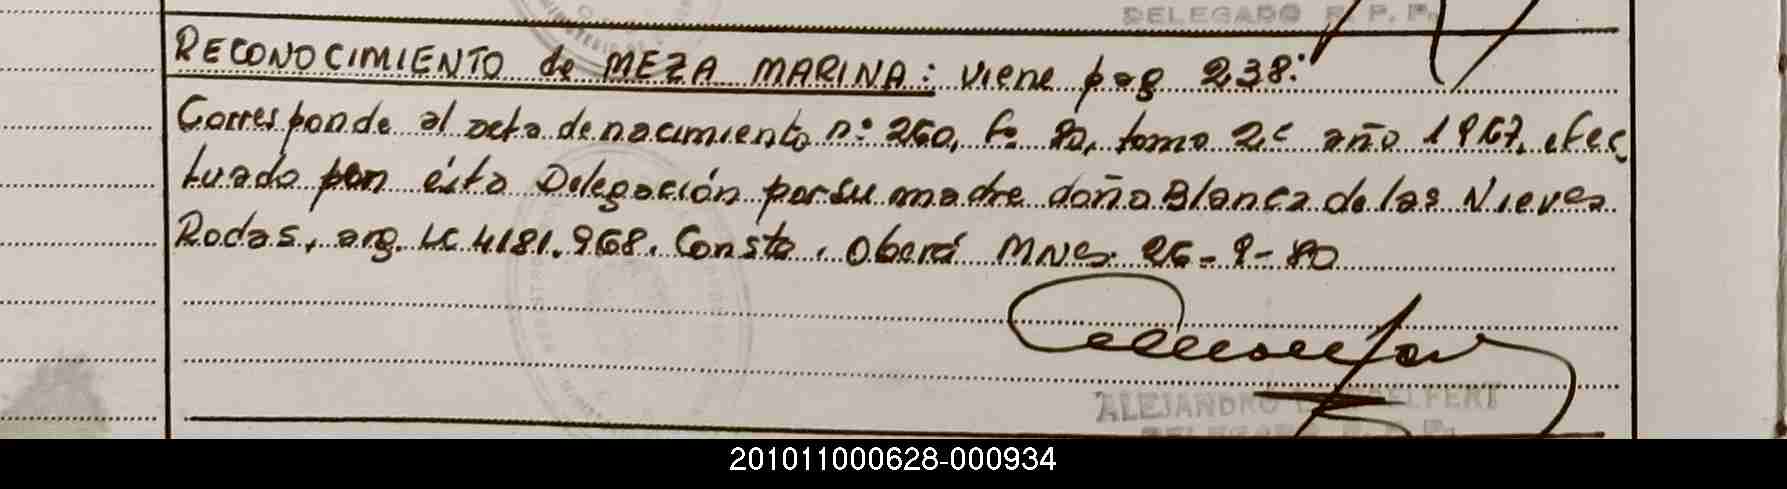 DELEGADO R. P. P.
RECONOCIMIENTO de MEZA MARINA: viene pag 238:
Corresponde al acta de nacimiento n° 260, f° 80, tomo 2° año 1967, efec
tuado por ésta Delegación por su madre doña Blanca de las Nieves
Rodas, arg. LC 4181.968. Conste. Oberá MNes. 26-9-80
ALEJANDRO
DELEGADO R. P. P.
201011000628-000934